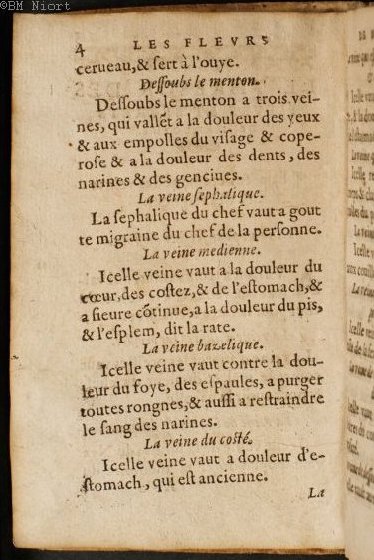 ©BM Niort
4 LES FLEVRS
cerueau, & ſert à l'ouye.
Deſſoubs le menton.
Deſſoubs le menton a trois vei-
nes, qui vallẽt a la douleur des yeux
& aux empolles du viſage & cope-
roſe & a la douleur des dents, des
narines & des genciues.
La veine ſephalique.
La ſephalique du chef vaut a gout
te migraine du chef de la perſonne.
La veine medienne.
Icelle veine vaut a la douleur du
cœur, des coſtez, & de l'eſtomach, &
a fieure cõtinue, a la douleur du pis,
& l'eſplem, dit la rate.
La veine bazelique.
Icelle veine vaut contre la dou-
leur du foye, des eſpaules, a purger
toutes rongnes, & auſſi a reſtraindre
le ſang des narines.
La veine du coſté.
Icelle veine vaut a douleur d'e-
ſtomach, qui est ancienne.
La